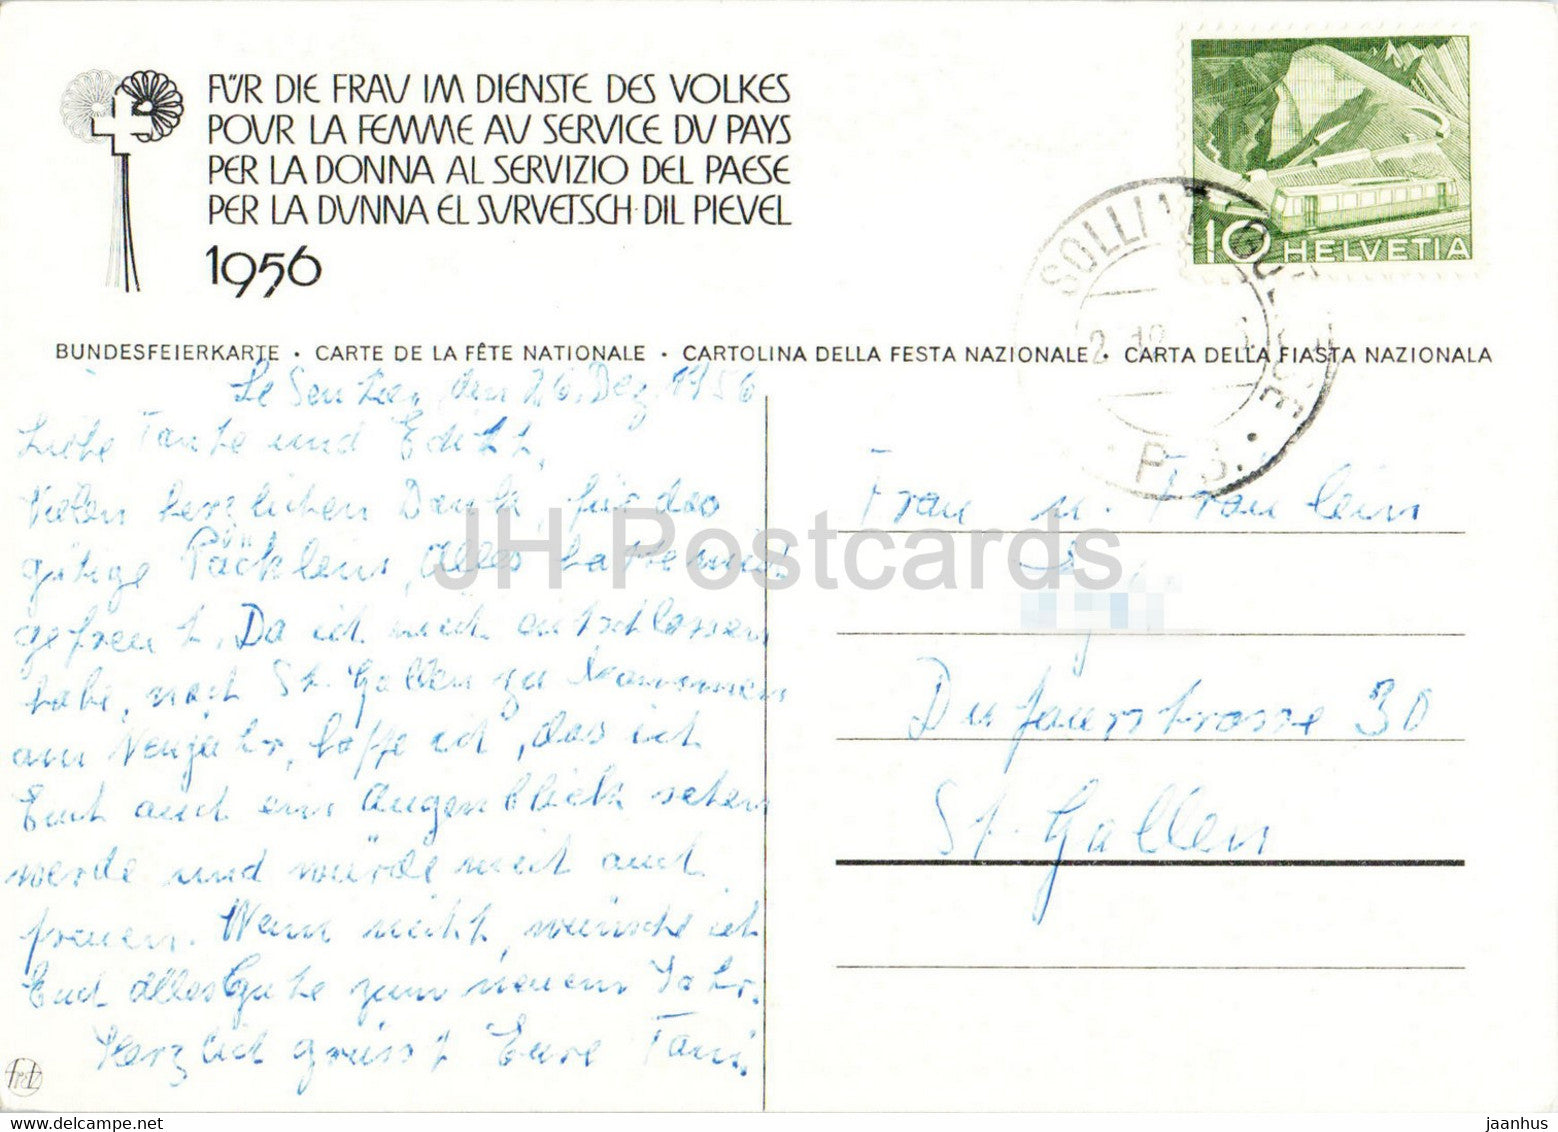 FÜR DIE FRAU IM DIENSTE DES VOLKES
POUR LA FEMME AU SERVICE DU PAYS
PER LA DONNA AL SERVIZIO DEL PAESE
PER LA DUNNA EL SURVETSCH DIL PIEVEL
1956
10 HELVETIA
BUNDESFEIERKARTE · CARTE DE LA FÊTE NATIONALE · CARTOLINA DELLA FESTA NAZIONALE · CARTA DELLA FIASTA NAZIONALA
P. S.
Le Sentier, den 26. Dez. 1956
Liebe Tante und Edith,
Vielen herzlichen Dank, für das
gütige Päcklein, alles hat mich
gefreut. Da ich mich entschlossen
habe, nach St. Gallen zu kommen
am Neujahr, hoffe ich, das ich
Euch auch ein Augenblick sehen
werde und würde mich auch
freuen. Wenn nicht, wünsche ich
Euch alles Gute zum neuen Jahr.
Herzlich grüsst Eure
Frau u. Fraulein
Dufourstrasse 30
St. Gallen
fretz
JH Postcards
jaanhus